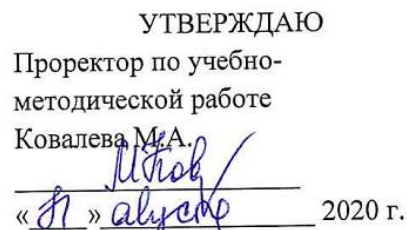 УТВЕРЖДАЮ
Проректор по учебно-
методической работе
Ковалева М.А.
« » августа 2020 г.